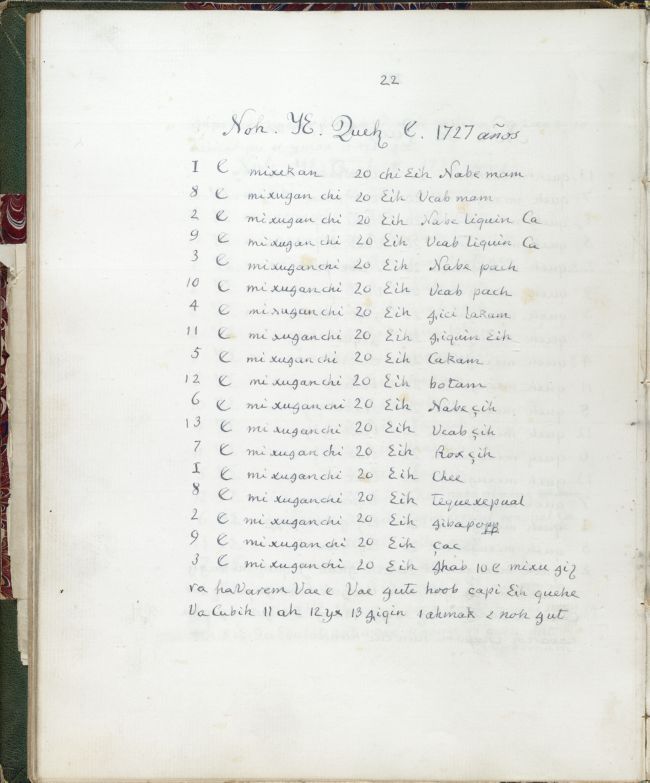 22
Noh. YE. Queh C. 1727 años
I C mixekan 20 chi Eih Nabe mam
8 C mixugan chi 20 Eih Vcab mam
2 C mixugan chi 20 Eih Nabe liquin Ca
9 C mixugan chi 20 Eih Vcab liquin Ca
3 C mixuganchi 20 Eih Nabe pach
10 C mixuganchi 20 Eih Vcab pach
4 C mi xuganchi 20 Eih gici lakam
11 C mi xuganchi 20 Eih giquin Eih
5 C mi xuganchi 20 Eih Cakam
12 C mi xuganchi 20 Eih botam
6 C mi xuganchi 20 Eih Nabe çih
13 C mi xuganchi 20 Eih Vcab çih
7 C mi xugan chi 20 Eih Rox çih
I C mi xuganchi 20 Eih Chee
8 C mi xuganchi 20 Eih Tequexepual
2 C mi xuganchi 20 Eih gibapopp
9 C mi xugan chi 20 Eih çac
3 C mi xuganchi 20 Eih ghab 10 C mixu giz
ra haVarem Vae C Vae gute hoob capi Eih quehe
Va Cubih 11 ah 12 yx 13 giqin 1 ahmak 2 noh gut